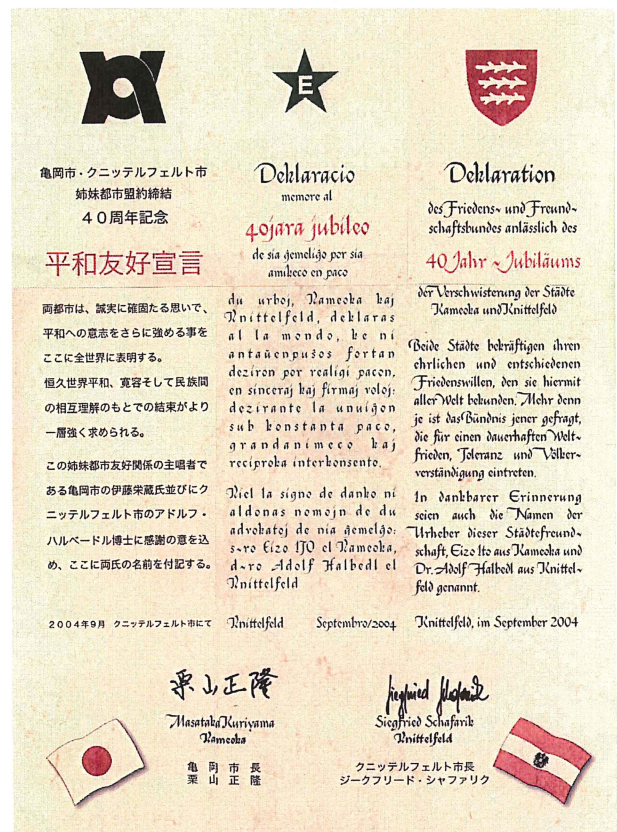 亀岡市・クニッテルフェルト市
姉妹都市盟約締結
40周年記念
平和友好宣言
両都市は、誠実に確固たる思いで、
平和への意志をさらに強める事を
ここに全世界に表明する。
恒久世界平和、寛容そして民族間
の相互理解のもとでの結束がより
一層強く求められる。
この姉妹都市友好関係の主唱者で
ある亀岡市の伊藤栄蔵氏並びにク
ニッテルフェルト市のアドルフ・
ハルベードル博士に感謝の意を込
め、ここに両氏の名前を付記する。
2004年9月 クニッテルフェルト市にて
E
Deklaracio
memore al
40jara jubileo
de sia ĝemeliĝo por sia
amikeco en paco
du urboj, Kameoka kaj
Knittelfeld, deklaras
al la mondo, ke ni
antaŭenpuŝos fortan
deziron por realigi pacon,
en sinceraj kaj firmaj voloj:
dezirante la unuiĝon
sub konstanta paco,
grandanimeco kaj
reciproka interkonsento.
Kiel la signo de danko ni
aldonas nomojn de du
advokatoj de nia ĝemelĝo:
s-ro Eizo ITO el Kameoka,
d-ro Adolf Halbedl el
Knittelfeld
Knittelfeld Septembro/2004
Deklaration
des Friedens- und Freund-
schaftsbundes anlässlich des
40 Jahr-Jubiläums
der Verschwisterung der Städte
Kameoka und Knittelfeld
Beide Städte bekräftigen ihren
ehrlichen und entschiedenen
Friedenswillen, den sie hiermit
aller Welt bekunden. Mehr denn
je ist das Bündnis jener gefragt,
die für einen dauerhaften Welt-
frieden, Toleranz und Völker-
verständigung eintreten.
In dankbarer Erinnerung
seien auch die Namen der
Urheber dieser Städtefreund-
schaft, Eizo Ito aus Kameoka und
Dr. Adolf Halbedl aus Knittel-
feld genannt.
Knittelfeld, im September 2004
栗山正隆
Masataka Kuriyama
Kameoka
亀岡市長
栗山正隆
Siegfried Schafarik
Siegfried Schafarik
Knittelfeld
クニッテルフェルト市長
ジークフリード・シャファリク